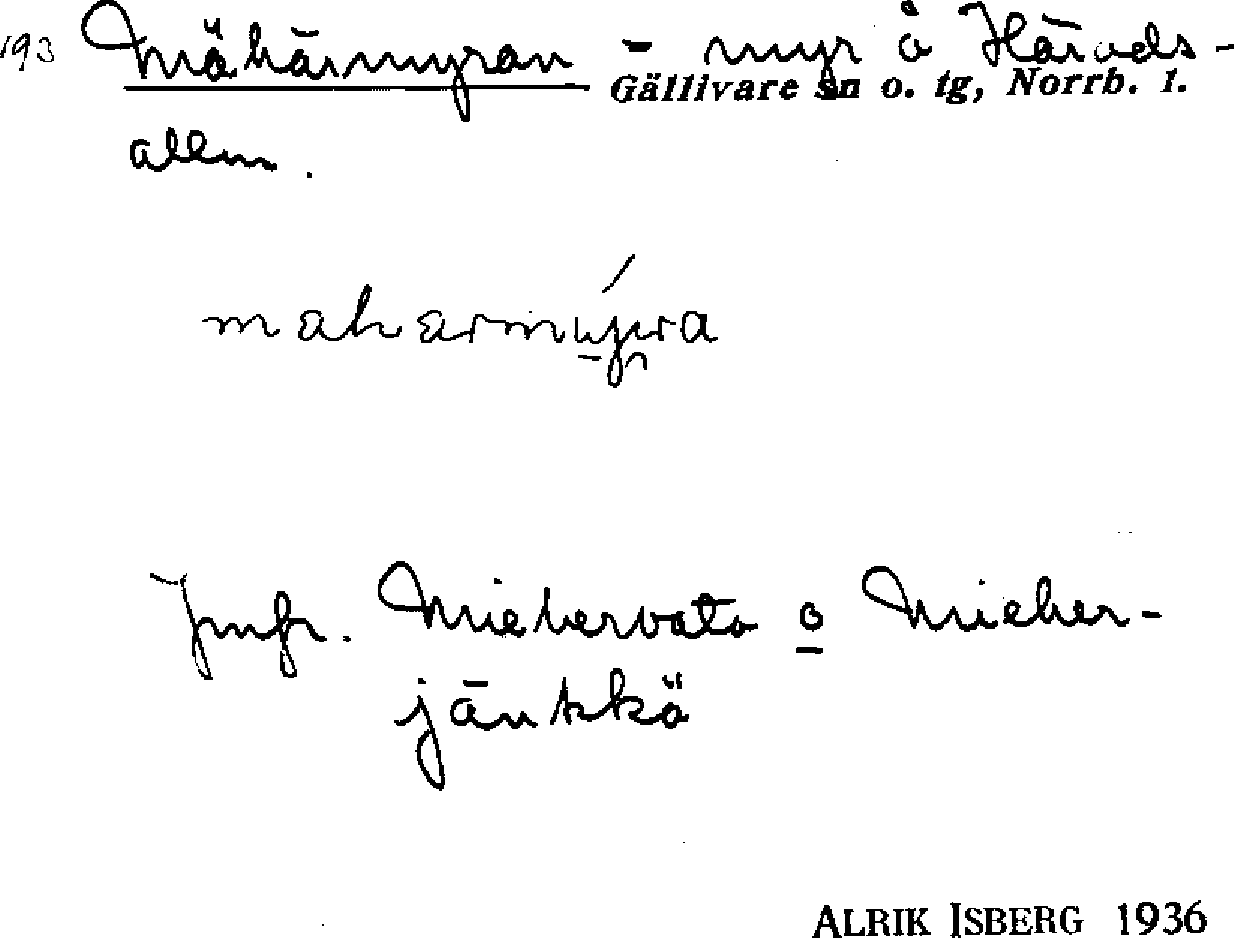 193 Mähärmyran - myr å Härads-
Gällivare sn o. tg, Norrb. l.
allm.
Jmfr. Miehervata o Mieher-
jänkkä
ALRIK ISBERG 1936